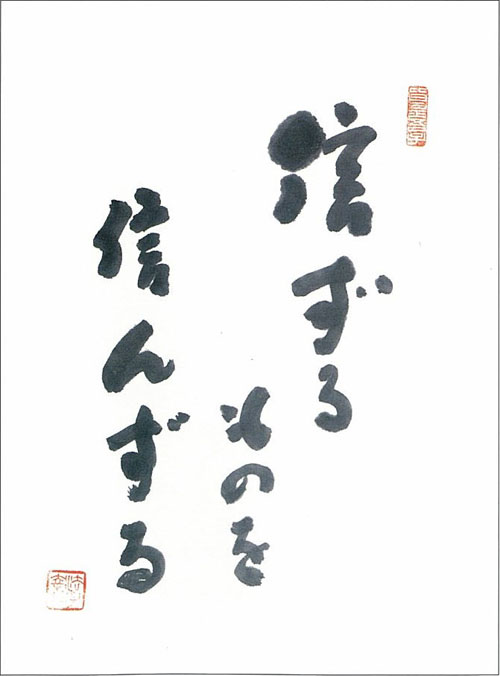 信ずる
ものを
信んずる